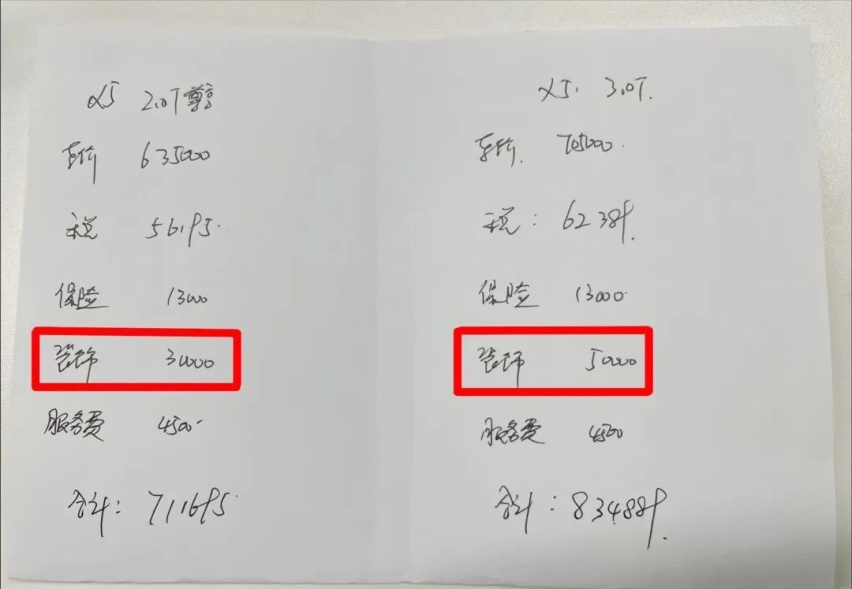 X5 2.0T
车价 635000
税 56195.
保险 13000
装饰 30000
服务费 4500-
合计：711695.
X5. 3.0T.
车价. 705000.
税：62389.
保险 13000.
装饰 50000
服务费 4500
合计：834889.